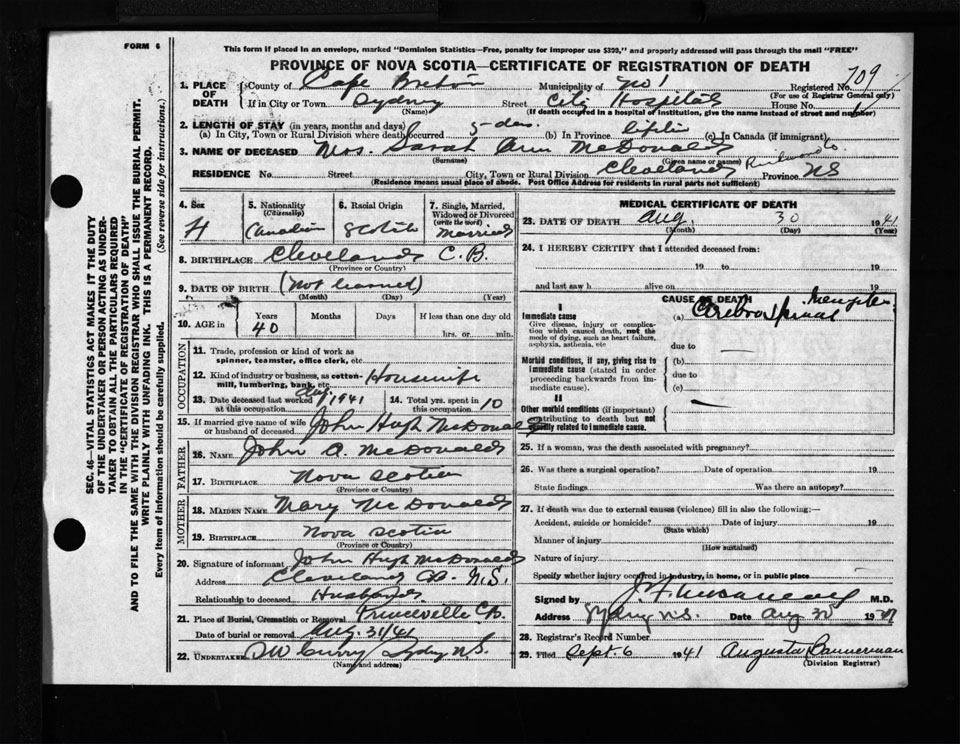 FORM 6
This form if placed in an envelope, marked "Dominion Statistics—Free, penalty for improper use $300," and properly addressed will pass through the mail "FREE"
PROVINCE OF NOVA SCOTIA—CERTIFICATE OF REGISTRATION OF DEATH
1. PLACE OF DEATH County of Cape Breton Municipality of No 1 Registered No. 709
(For use of Registrar General only)
If in City or Town Sydney Street City Hospital House No.
(Name) (If death occurred in a hospital of institution, give the name instead of street and number)
2. LENGTH OF STAY (in years, months and days)
(a) In City, Town or Rural Division where death occurred 5-das. (b) In Province life (c) In Canada (if immigrant)
3. NAME OF DECEASED Mrs. Sarah Ann McDonald
(Surname) (Given name or names)
RESIDENCE No. Street City, Town or Rural Division Cleveland Richmond Co. Province NS
(Residence means usual place of abode. Post Office Address for residents in rural parts not sufficient)
4. Sex F
5. Nationality (Citizenship) Canadian
6. Racial Origin Scotch
7. Single, Married, Widowed or Divorced (write the word) Married
8. BIRTHPLACE Cleveland C.B.
(Province or Country)
9. DATE OF BIRTH (Not learned)
(Month) (Day) (Year)
10. AGE in Years Months Days If less than one day old
40 hrs. or min.
OCCUPATION
11. Trade, profession or kind of work as spinner, teamster, office clerk, etc.
12. Kind of industry or business, as cotton-mill, lumbering, bank, etc. Housewife
13. Date deceased last worked at this occupation Aug 1941 14. Total yrs. spent in this occupation 10
15. If married give name of wife or husband of deceased John Hugh McDonald
FATHER
16. NAME John A. McDonald
17. BIRTHPLACE Nova Scotia
(Province or Country)
MOTHER
18. MAIDEN NAME Mary McDonald
19. BIRTHPLACE Nova Scotia
(Province or Country)
20. Signature of informant John Hugh McDonald
Address Cleveland CB. N.S.
Relationship to deceased Husband
21. Place of Burial, Cremation or Removal Princeville CB.
Date of burial or removal Aug. 31/41
22. UNDERTAKER DW Curry Sydney NS.
(Name and address)
MEDICAL CERTIFICATE OF DEATH
23. DATE OF DEATH Aug. 30 1941
(Month) (Day) (Year)
24. I HEREBY CERTIFY that I attended deceased from:
19 to 19
and last saw h alive on 19
CAUSE OF DEATH
I
Immediate cause
Give disease, injury or complication which caused death, not the mode of dying, such as heart failure, asphyxia, asthenia, etc
(a) Cerebro Spinal
due to
Morbid conditions, if any, giving rise to immediate cause (stated in order proceeding backwards from immediate cause).
(b)
due to
(c)
II
Other morbid conditions (if important) contributing to death but not causally related to immediate cause.
25. If a woman, was the death associated with pregnancy?
26. Was there a surgical operation? Date of operation 19
State findings Was there an autopsy?
27. If death was due to external causes (violence) fill in also the following:—
Accident, suicide or homicide? Date of injury 19
(State which)
Manner of injury
(How sustained)
Nature of injury
Specify whether injury occurred in industry, in home, or in public place
Signed by M.D.
Address Sydney N.S. Date Aug 30 19
28. Registrar's Record Number
29. Filed Sept. 6 1941 Augusta Bannerman
(Division Registrar)
SEC. 46—VITAL STATISTICS ACT MAKES IT THE DUTY
OF THE UNDERTAKER OR PERSON ACTING AS UNDER-
TAKER TO OBTAIN ALL THE PARTICULARS REQUIRED
IN THE "CERTIFICATE OF REGISTRATION OF DEATH"
AND TO FILE THE SAME WITH THE DIVISION REGISTRAR WHO SHALL ISSUE THE BURIAL PERMIT.
WRITE PLAINLY WITH UNFADING INK. THIS IS A PERMANENT RECORD.
Every item of information should be carefully supplied. (See reverse side for instructions.)